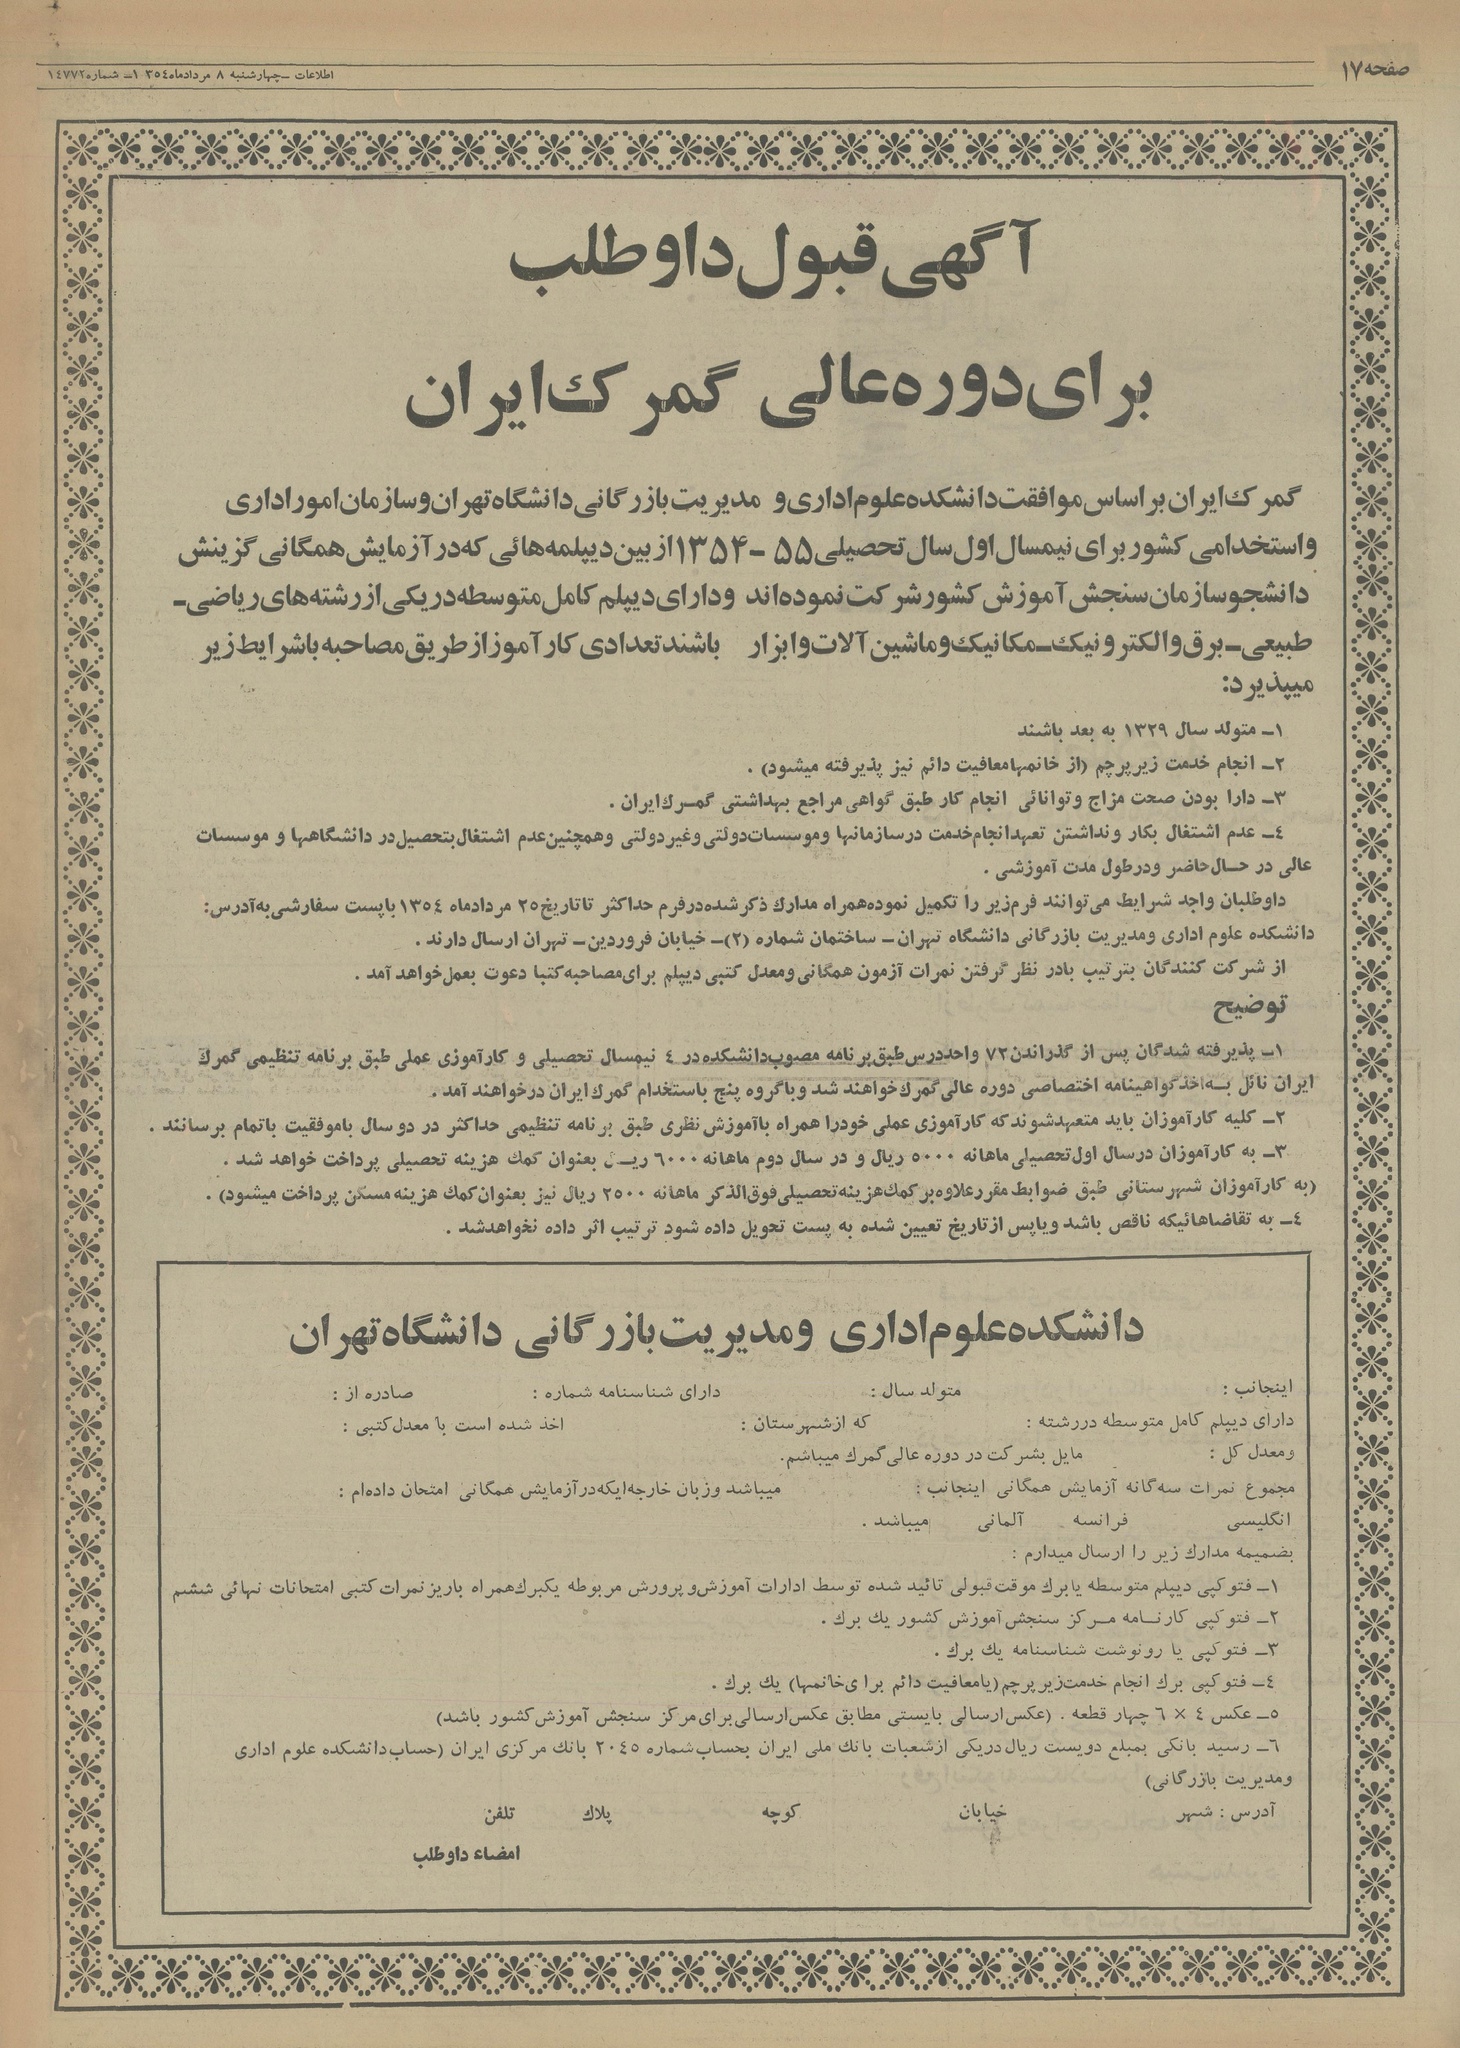 صفحه ۱۷
اطلاعات - چهارشنبه ۸ مردادماه ۱۳۵۴ - شماره ۱۴۷۷۲
آگهی قبول داوطلب
برای دوره عالی گمرك ایران
گمرك ایران بر اساس موافقت دانشکده علوم اداری و مدیریت بازرگانی دانشگاه تهران و سازمان امور اداری
و استخدامی کشور برای نیمسال اول سال تحصیلی ۵۵ - ۱۳۵۴ از بین دیپلمه‌هائی که در آزمایش همگانی گزینش
دانشجو سازمان سنجش آموزش کشور شرکت نموده‌اند و دارای دیپلم کامل متوسطه در یکی از رشته‌های ریاضی-
طبیعی - برق و الکترونیک - مکانیک و ماشین آلات و ابزار باشند تعدادی کارآموز از طریق مصاحبه با شرایط زیر
میپذیرد:
۱- متولد سال ۱۳۲۹ به بعد باشند
۲- انجام خدمت زیر پرچم (از خانمها معافیت دائم نیز پذیرفته میشود) .
۳- دارا بودن صحت مزاج و توانائی انجام کار طبق گواهی مراجع بهداشتی گمرك ایران .
٤- عدم اشتغال بکار و نداشتن تعهد انجام خدمت در سازمانها و موسسات دولتی و غیر دولتی و همچنین عدم اشتغال بتحصیل در دانشگاهها و موسسات
عالی در حال حاضر و در طول مدت آموزشی .
داوطلبان واجد شرایط می‌توانند فرم زیر را تکمیل نموده همراه مدارك ذکر شده در فرم حداکثر تا تاریخ ۲۵ مرداد ماه ۱۳۵٤ با پست سفارشی به آدرس:
دانشکده علوم اداری و مدیریت بازرگانی دانشگاه تهران - ساختمان شماره (۲) - خیابان فروردین - تهران ارسال دارند .
از شرکت کنندگان بترتیب با در نظر گرفتن نمرات آزمون همگانی و معدل کتبی دیپلم برای مصاحبه کتبا دعوت بعمل خواهد آمد .
توضیح
۱- پذیرفته شدگان پس از گذراندن ۷۲ واحد درس طبق برنامه مصوب دانشکده در ٤ نیمسال تحصیلی و کارآموزی عملی طبق برنامه تنظیمی گمرك
ایران نائل به اخذ گواهینامه اختصاصی دوره عالی گمرك خواهند شد و با گروه پنج باستخدام گمرك ایران درخواهند آمد .
۲- کلیه کارآموزان باید متعهد شوند که کارآموزی عملی خود را همراه با آموزش نظری طبق برنامه تنظیمی حداکثر در دو سال با موفقیت باتمام برسانند .
۳- به کارآموزان در سال اول تحصیلی ماهانه ۵۰۰۰ ریال و در سال دوم ماهانه ٦۰۰۰ ریال بعنوان کمك هزینه تحصیلی پرداخت خواهد شد .
(به کارآموزان شهرستانی طبق ضوابط مقرر علاوه بر کمك هزینه تحصیلی فوق‌الذکر ماهانه ۲۵۰۰ ریال نیز بعنوان کمك هزینه مسکن پرداخت میشود) .
٤- به تقاضاهائیکه ناقص باشد و یا پس از تاریخ تعیین شده به پست تحویل داده شود ترتیب اثر داده نخواهد شد .
دانشکده علوم اداری و مدیریت بازرگانی دانشگاه تهران
اینجانب : متولد سال : دارای شناسنامه شماره : صادره از :
دارای دیپلم کامل متوسطه در رشته : که از شهرستان : اخذ شده است با معدل کتبی :
و معدل کل : مایل بشرکت در دوره عالی گمرك میباشم.
مجموع نمرات سه گانه آزمایش همگانی اینجانب : میباشد و زبان خارجه‌ایکه در آزمایش همگانی امتحان داده‌ام :
انگلیسی فرانسه آلمانی میباشد .
بضمیمه مدارك زیر را ارسال میدارم :
۱- فتوکپی دیپلم متوسطه یا برك موقت قبولی تائید شده توسط ادارات آموزش و پرورش مربوطه یکبرك همراه با ریز نمرات کتبی امتحانات نهائی ششم
۲- فتوکپی کارنامه مرکز سنجش آموزش کشور یك برك .
۳- فتوکپی یا رونوشت شناسنامه یك برك .
٤- فتوکپی برك انجام خدمت زیر پرچم (یا معافیت دائم برای خانمها) یك برك .
۵- عکس ٤ × ٦ چهار قطعه . (عکس ارسالی بایستی مطابق عکس ارسالی برای مرکز سنجش آموزش کشور باشد)
٦- رسید بانکی بمبلغ دویست ریال در یکی از شعبات بانك ملی ایران بحساب شماره ۲۰٤۵ بانك مرکزی ایران (حساب دانشکده علوم اداری
و مدیریت بازرگانی)
آدرس : شهر خیابان کوچه پلاك تلفن
امضاء داوطلب